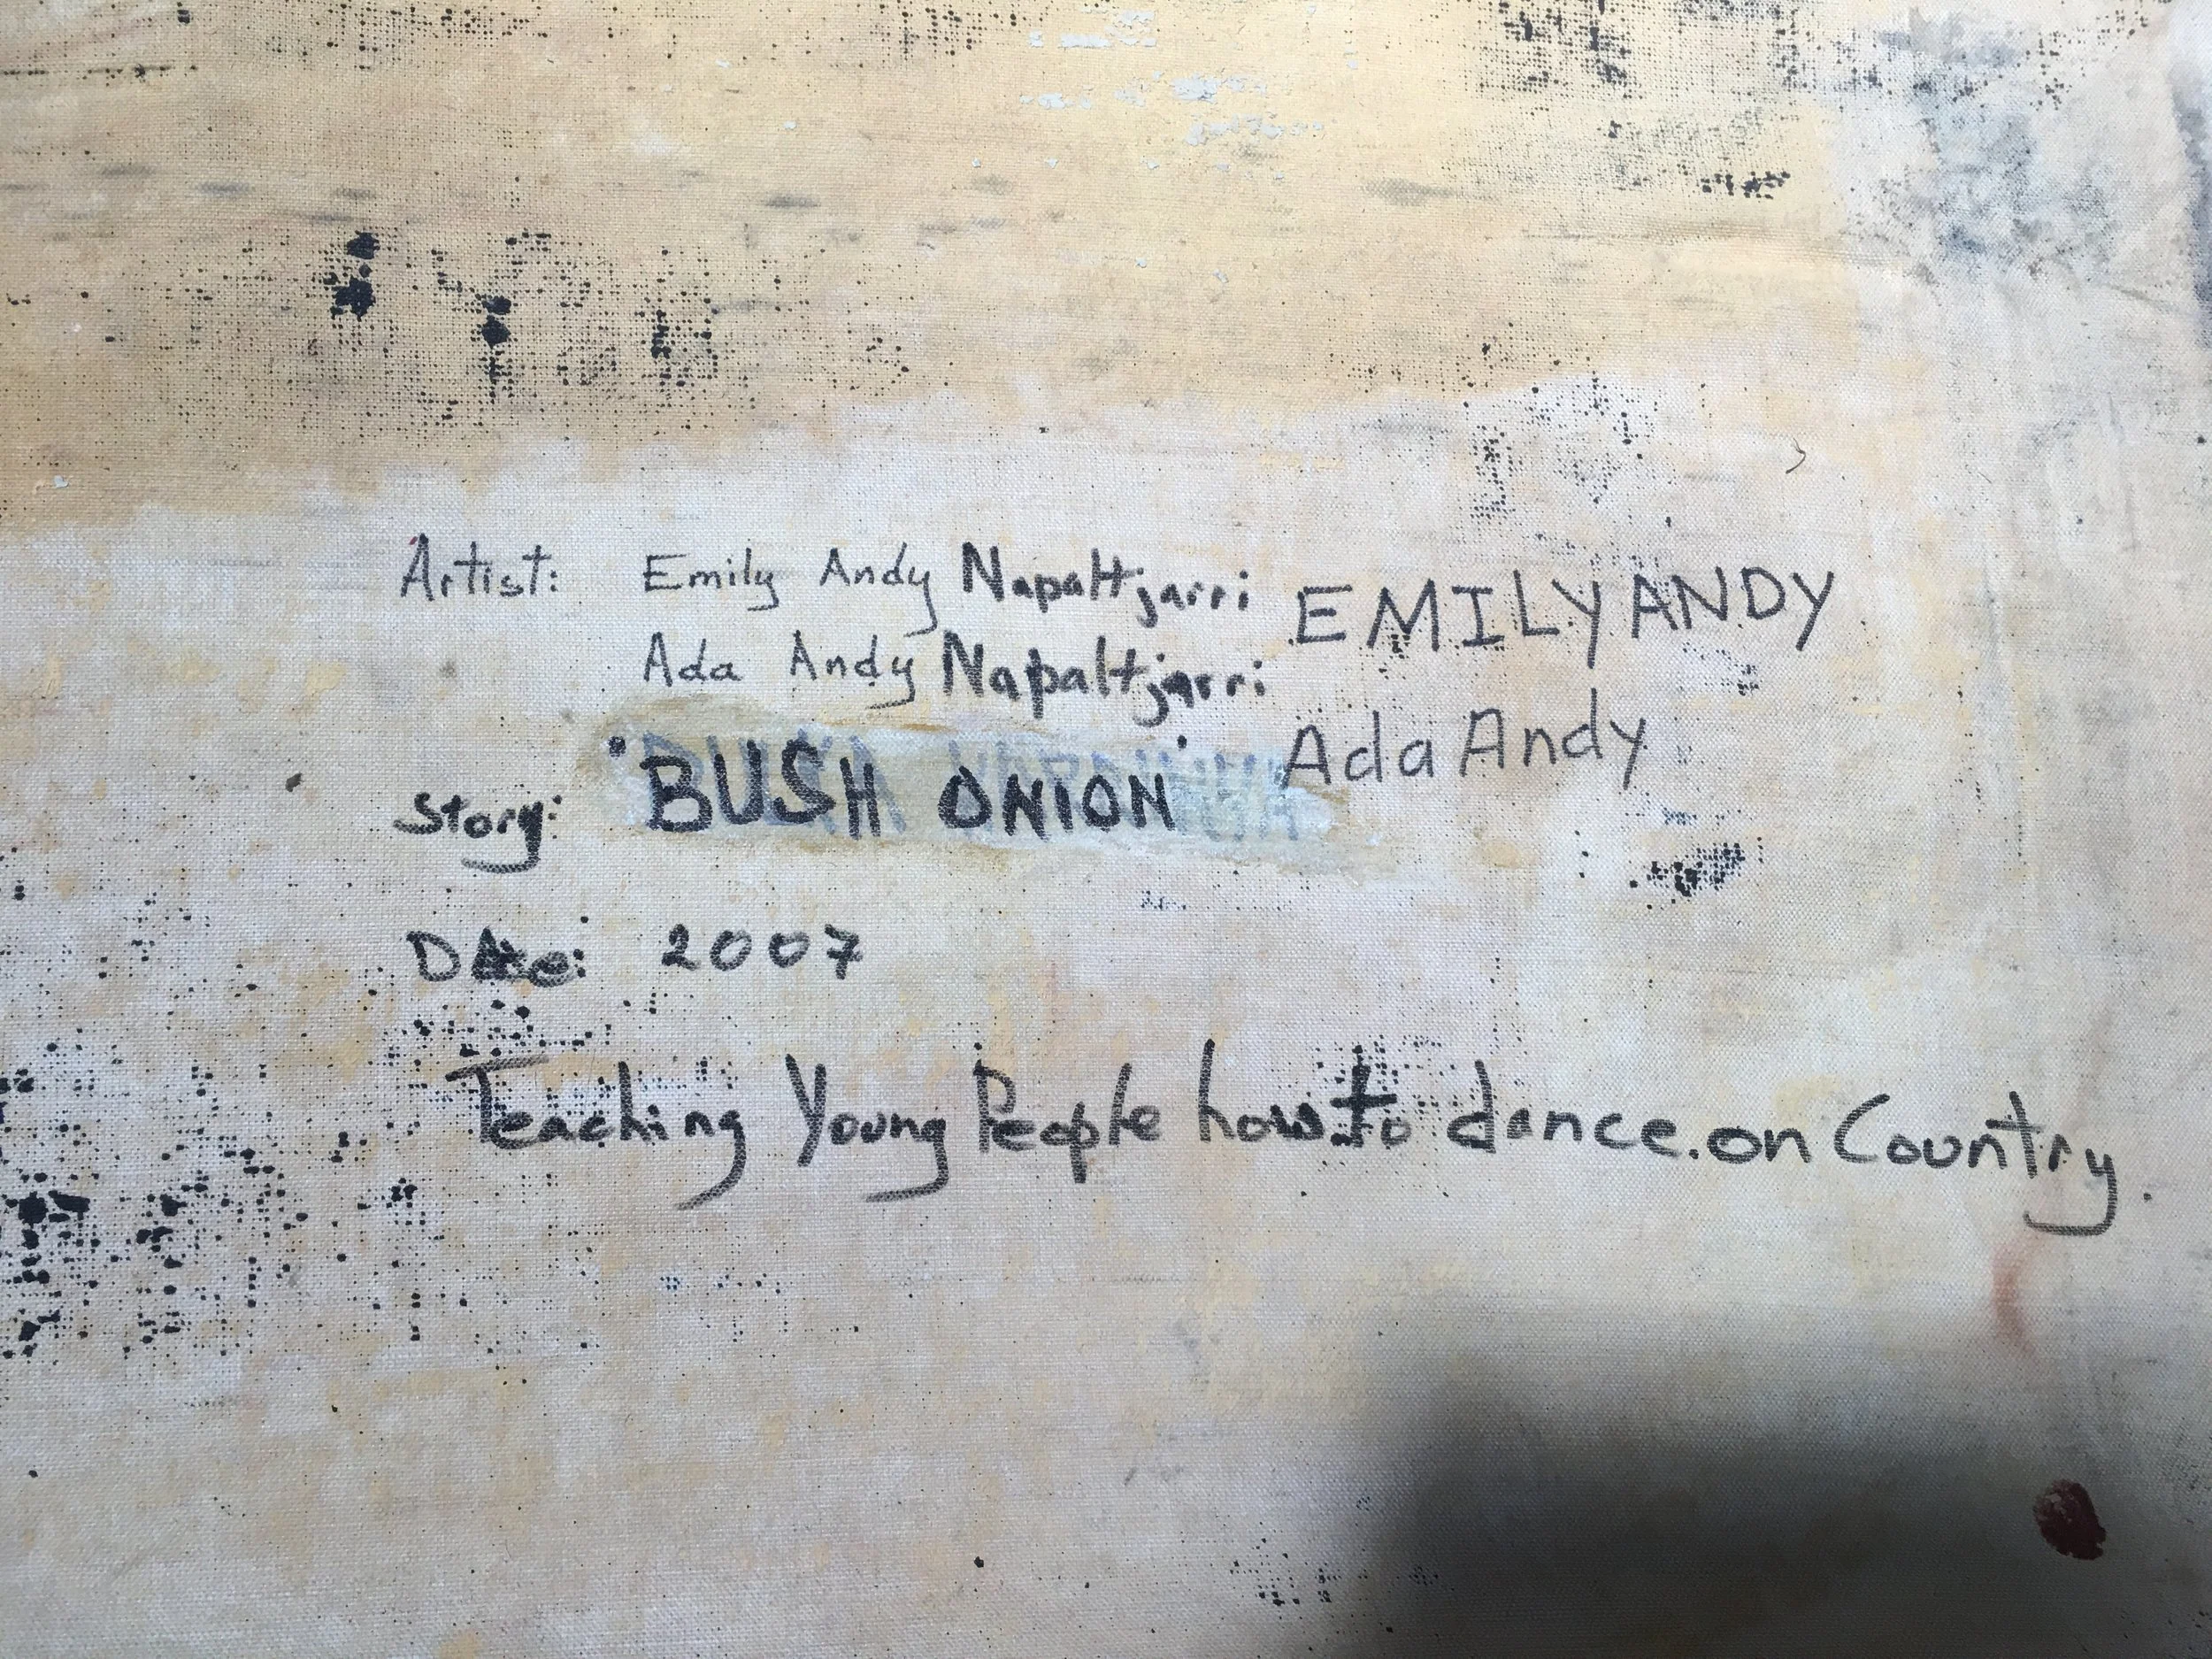 Artist: Emily Andy Napaltjarri EMILY ANDY
Ada Andy Napaltjarri Ada Andy
Story: BUSH ONION
DAte: 2007
Teaching Young People how to dance.on Country.